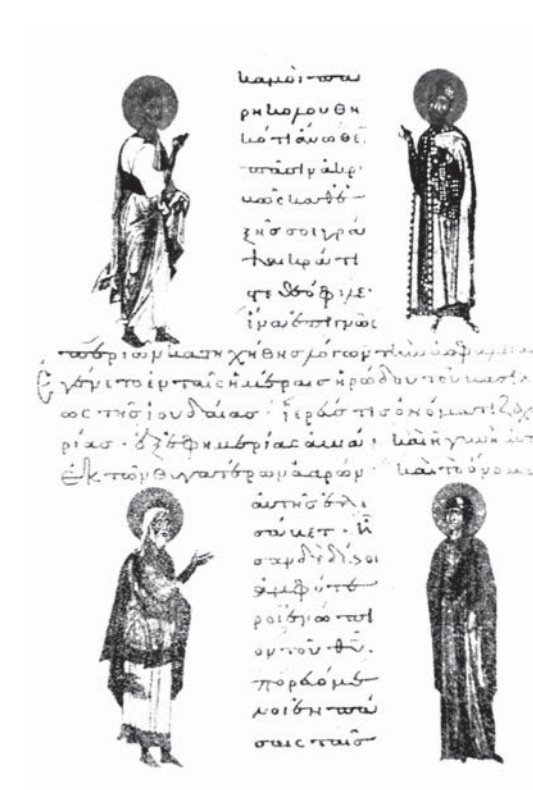 καμοὶ πα
ρηκολουθη
κότι ἄνωθε
πᾶσιν ἀκρι
βῶς καθε
ξῆς σοι γρά
ψαι κράτι
στε θεόφιλε·
ἵνα ἐπιγνῶς
περὶ ὧν κατηχήθης λόγων τὴν ἀσφάλεια
Ἐγένετο ἐν ταῖς ἡμέραις ἡρώδου τοῦ βασιλ
έως τῆς ἰουδαίας· ἱερεύς τις ὀνόματι ζαχ
αρίας· ἐξ ἐφημερίας ἀβιά· καὶ ἡ γυνὴ
ἐκ τῶν θυγατέρων ἀαρών· καὶ τὸ ὄνομα
αὐτῆς ἐλι
σάβετ· ἦ
σαν δὲ δίκαιοι
ἀμφότε
ροι ἐνώπι
ον τοῦ θῦ·
πορευόμε
νοι ἐν πά
σαις ταῖς